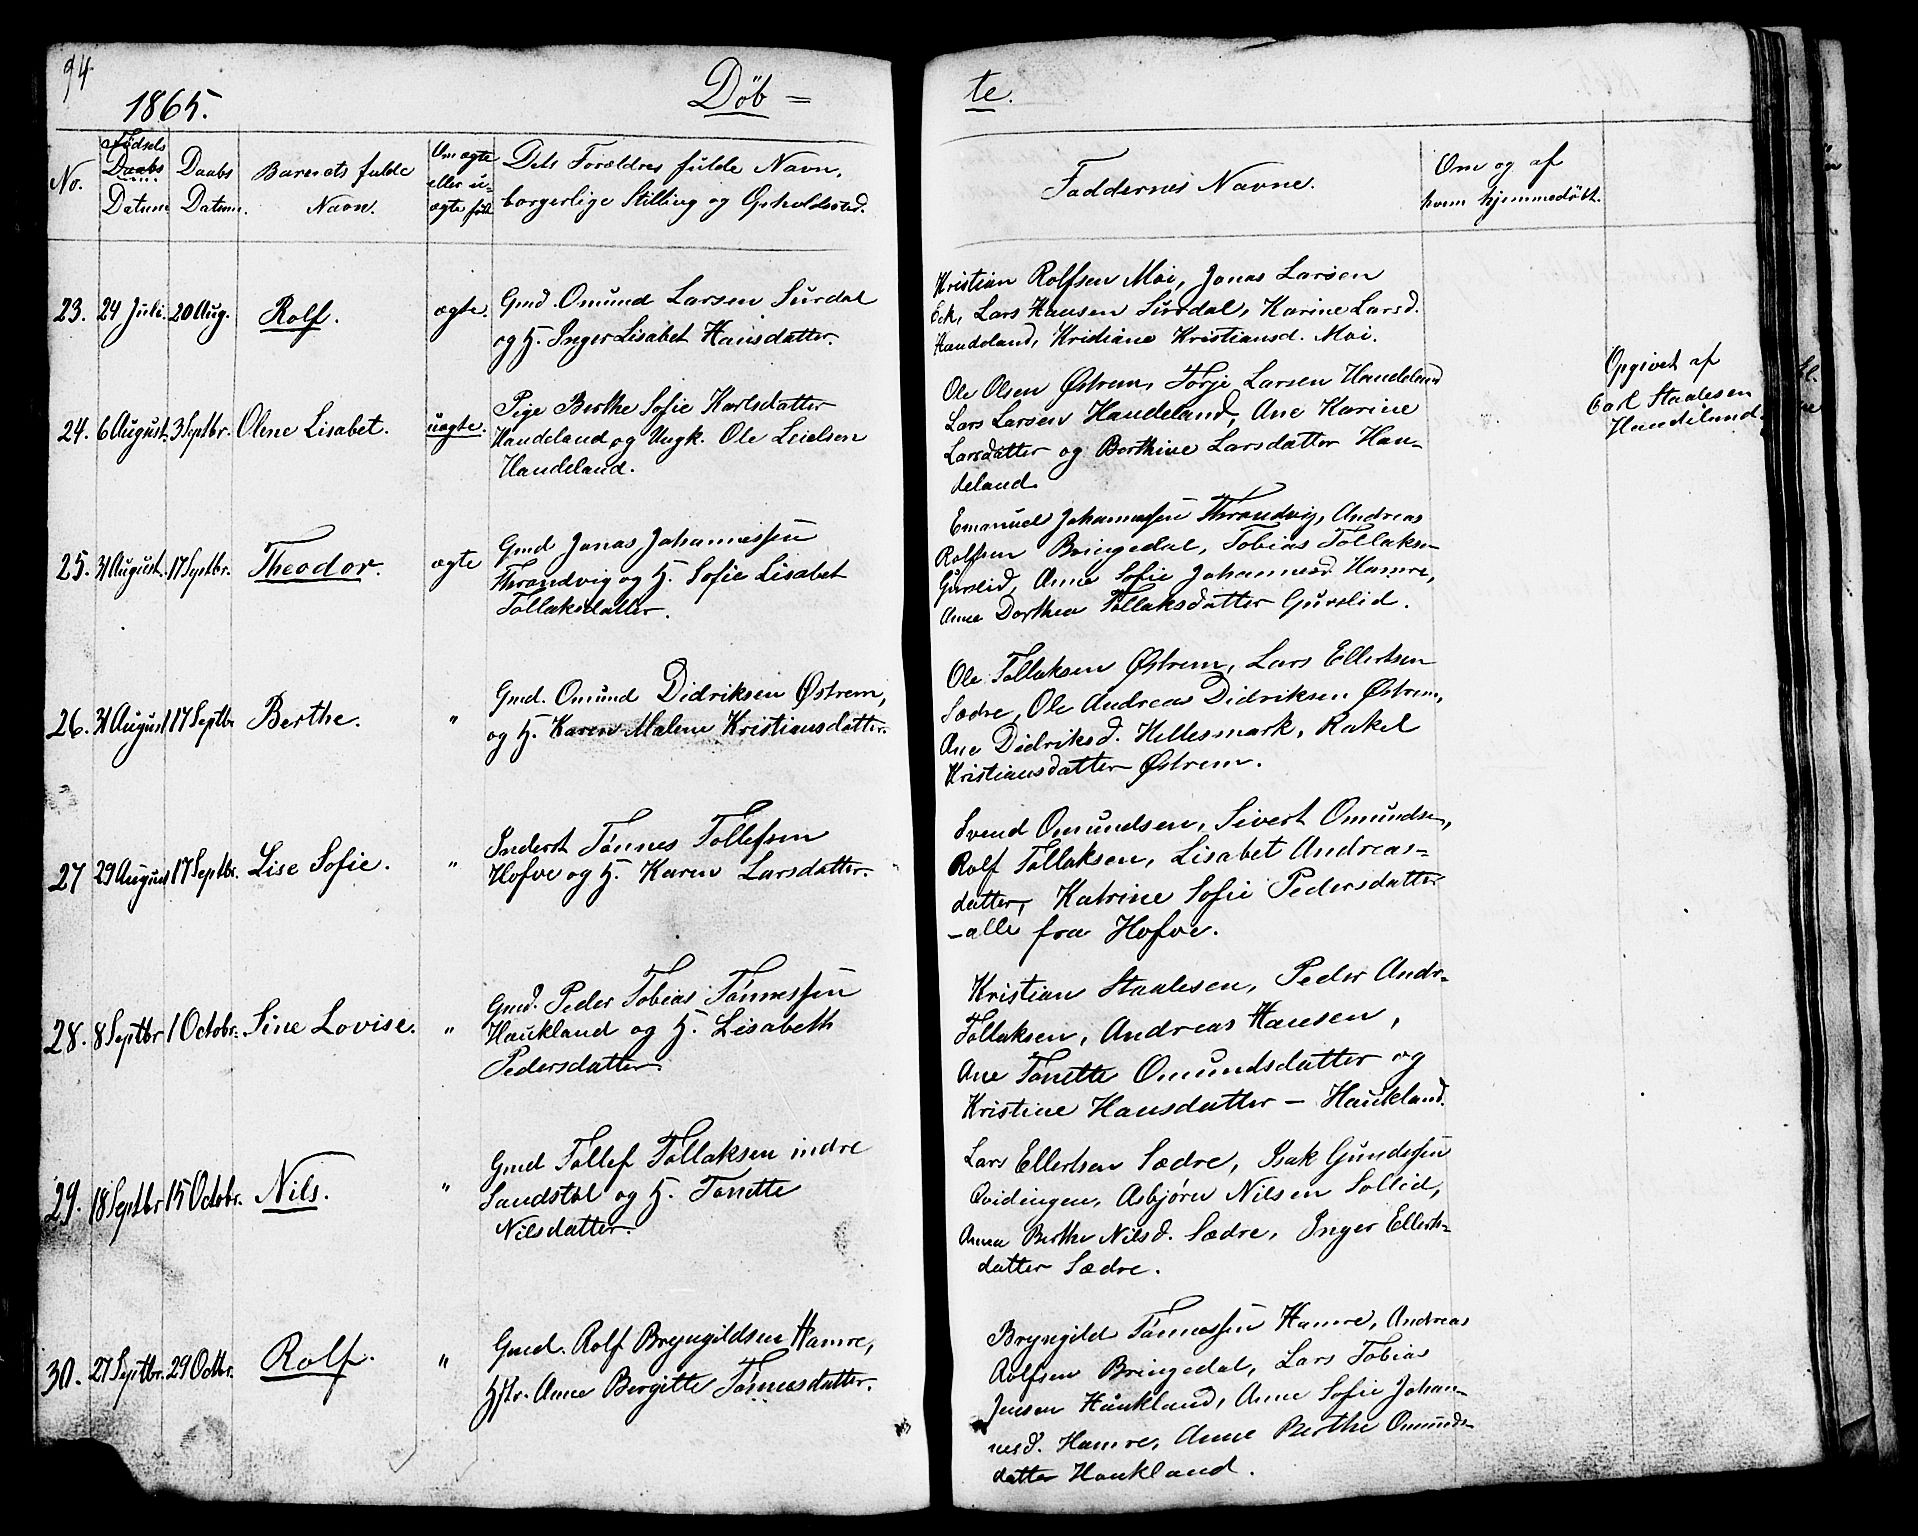 94
1865.
Døb = te.
No.
Fødsels
Daabs
Datum
Daabs
Datum.
Barnets fulde
Navn.
Om ægte
eller u-
ægte født
Dets Forældres fulde Navn,
borgerlige Stilling og Opholdssted.
Faddernes Navne.
Om og af
hvem hjemmedøbt.
23. 24 Juli. 20 Aug. Rolf. ægte.
Gmd. Omund Larsen Surdal
og H. Inger Lisabet Hansdatter.
Kristian Rolfsen Moi, Jonas Larsen
Eek, Lars Hansen Surdal, Karine Larsd.
Haudeland, Kristiane Kristiansd. Moi.
24. 6 August. 3 Septbr. Olene Lisabet. uægte.
Pige Berthe Sofie Karlsdatter
Handeland og Ungk. Ole Leielsen
Handeland.
Ole Olsen Østrem, Torje Larsen Handeland
Lars Larsen Handeland, Ane Karine
Larsdatter og Berthine Larsdatter Han-
deland.
Opgivet af
Carl Staalesen
Handeland.
25. 31 August. 17 Septbr. Theodor. ægte
Gmd Jonas Johannessen
Thrandvig og H. Sofie Lisabet
Tollaksdatter.
Emanuel Johannessen Thrandvig, Andreas
Rolfsen Bringedal, Tobias Tollaksen
Gurslid, Anne Sofie Johannesd. Hamre,
Anne Dorthea Tollaksdatter Gurslid.
26. 31 August 17 Septbr Berthe. "
Gmd. Omund Didriksen Østrem,
og H. Karen Malene Kristiansdatter.
Ole Tollaksen Østrem, Lars Ellertsen
Sædre, Ole Andreas Didriksen Østrem,
Ane Didriksd. Hellesmark, Rakel
Kristiansdatter Østrem.
27 29 August 17 Septbr. Lise Sofie. "
Inderst Tønnes Tollefsen
Hofve og H. Karen Larsdatter.
Svend Omundsen, Sivert Omundsen,
Rolf Tollaksen, Lisabet Andreas=
datter, Katrine Sofie Pedersdatter
- alle fra Hofve.
28. 8 Septbr 1 Octobr. Sine Lovise. "
Gmd. Peder Tobias Tønnessen
Haukland og H. Lisabeth
Pedersdatter
Kristian Staalesen, Peder Andr.
Tollaksen, Andreas Hansen,
Ane Tonette Omundsdatter og
Kristine Hansdatter - Haukland.
29. 18 Septbr 15 Octobr. Nils. "
Gmd Tollef Tollaksen indre
Sandstøl og H. Tonette
Nilsdatter.
Lars Ellertsen Sædre, Isak Gundersen
Qvidingen, Asbjørn Nilsen Sollid,
Anna Berthe Nilsd. Sædre, Inger Ellerts-
datter Sædre.
30. 27 Septbr. 29 Octbr. Rolf. "
Gmd. Rolf Bryngildsen Hamre,
Hstr. Anne Bergitte Tønnesdatter.
Bryngild Tønnessen Hamre, Andreas
Rolfsen Bringedal, Lars Tobias
Jensen Haukland, Anne Sofie Johan-
nesd. Hamre, Anne Berthe Omunds-
datter Haukland.